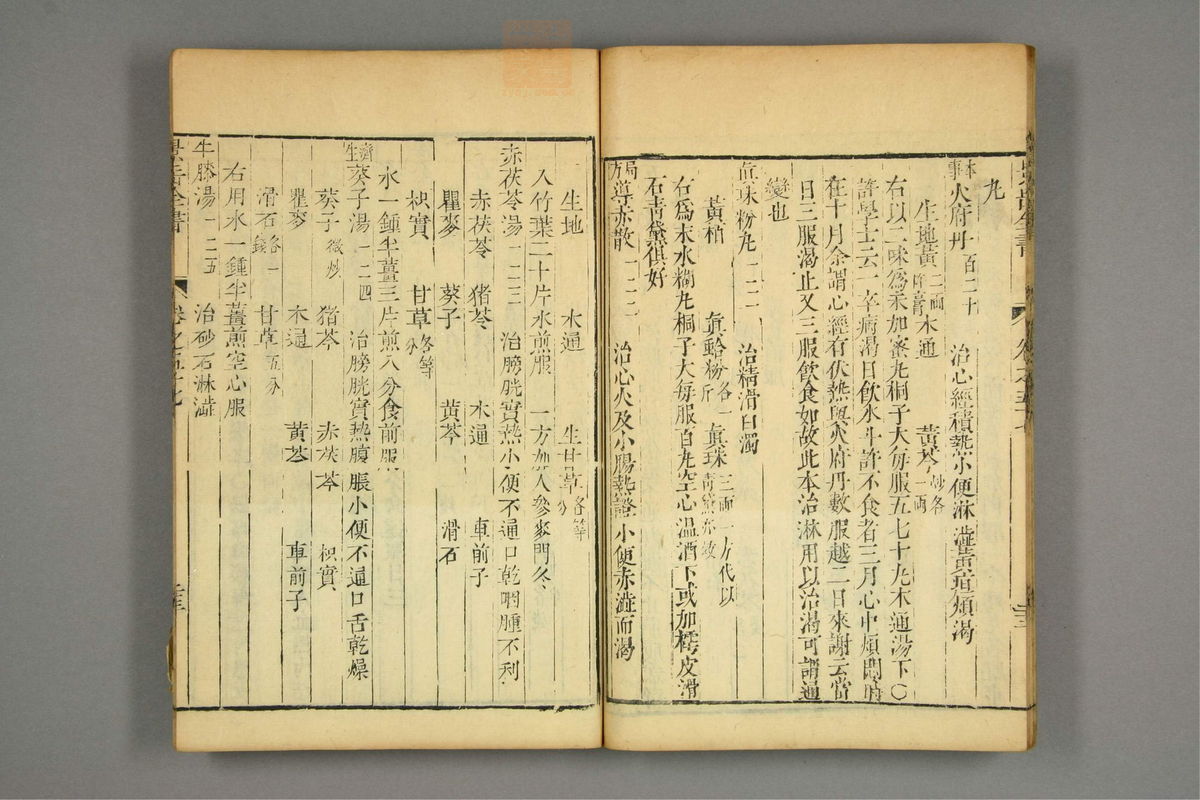 九
本事火府丹一百二十 治心經積熱小便淋澁黄疸煩渴
生地黄二兩 木通 黄芩炒各一兩
右以二味爲末加蜜九桐子大每服五七十九木通湯下〇
許學士云一卒病渴日飲水斗許不食者三月心中煩悶時
在十月余謂心經有伏熱與火府丹數服越二日來謝云當
日三服渴止又三服飲食如故此本治淋用以治渴可謂通
變也
眞珠粉九一二一 治精滑白濁
黄栢 眞蛤粉各一斤 眞珠三兩一方代以青黛亦效
右爲末水糊九桐子大每服百九空心温酒下或加樗皮滑
石青黛俱好
局方導赤散一二二 治心火及小腸熱證小便赤澁而渴
生地 木通 生甘草各等分
入竹葉二十片水煎服 一方加人參麥門冬
赤茯苓湯一二三 治膀胱實熱小便不通口乾咽腫不利
赤茯苓 猪苓 木通 車前子
瞿麥 葵子 黄芩 滑石
枳實 甘草各等分
水一鍾半薑三片煎八分食前服
濟生葵子湯一二四 治膀胱實熱腹脹小便不通口舌乾燥
葵子微炒 猪苓 赤茯苓 枳實
瞿麥 木通 黄芩 車前子
滑石各一錢 甘草五分
右用水一鍾半薑煎空心服
牛膝湯一二五 治砂石淋澁
景岳全書 卷之五十七